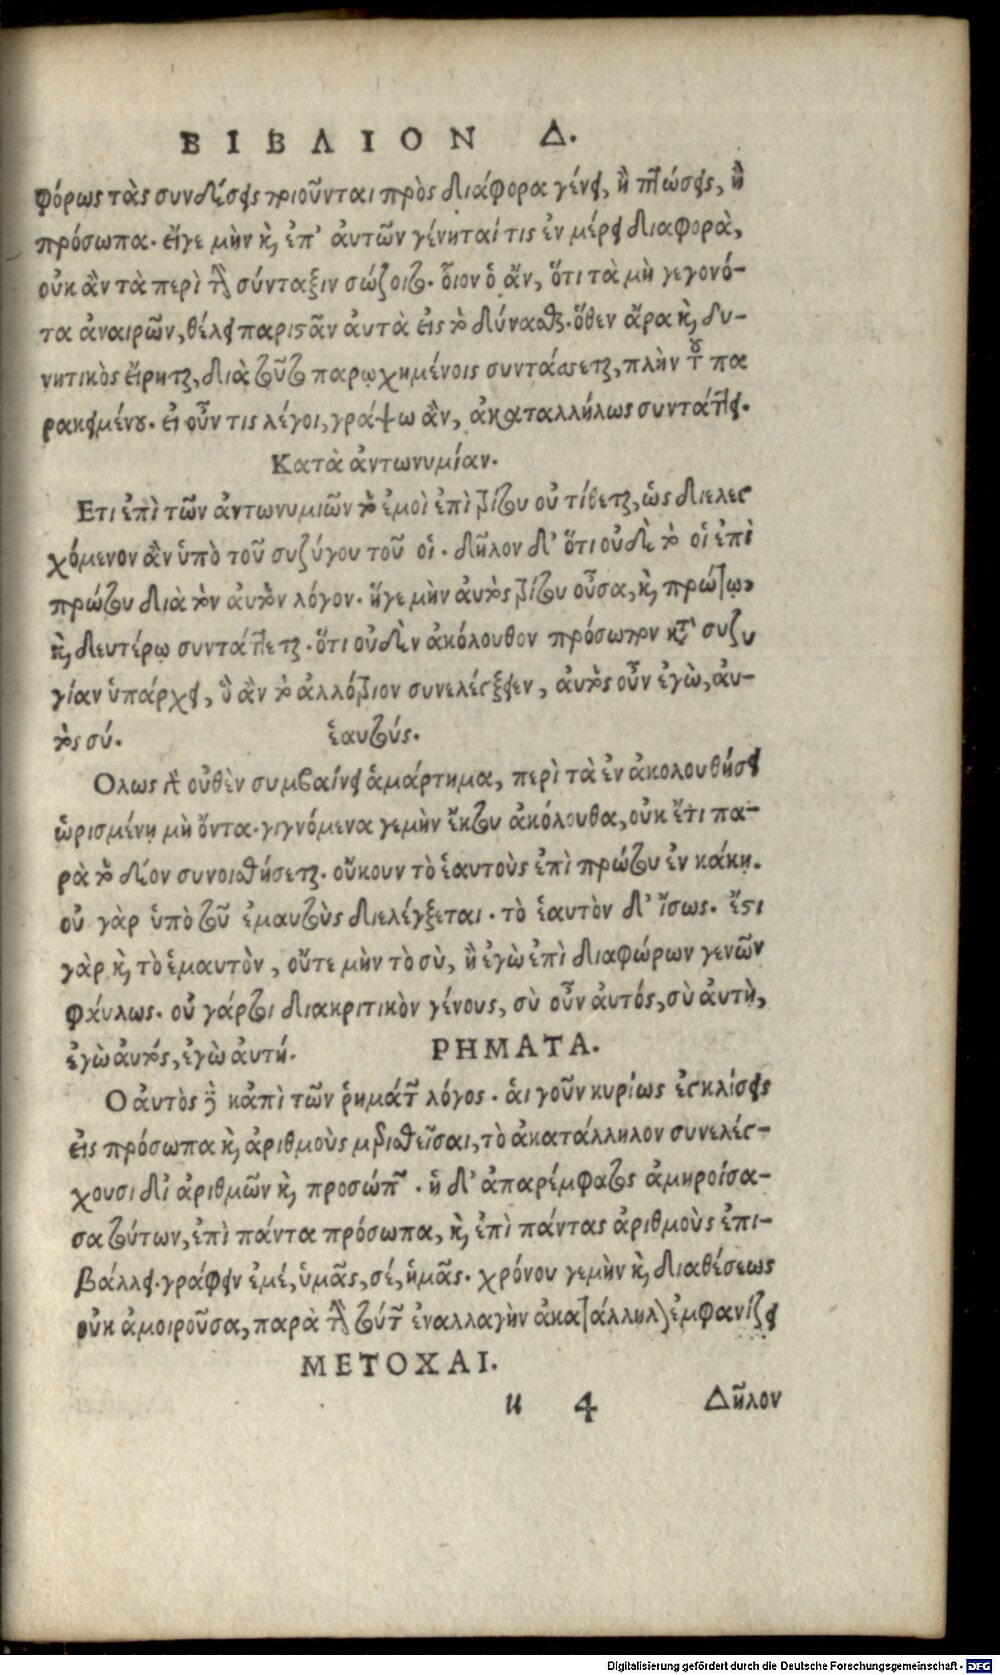 ΒΙΒΛΙΟΝ Δ.
φόρως τὰς συνδέσεις ποιοῦνται πρὸς διάφορα γένει, ἢ πτώσεις, ἢ
πρόσωπα. εἴγε μὴν καὶ ἐπ' αὐτῶν γένηταί τις ἐν μέρει διαφορὰ,
οὐκ ἂν τὰ περὶ τὴν σύνταξιν σώζοιτο. οἷον ὁ ἄν, ὅτι τὰ μὴ γεγονό-
τα ἀναιρῶν, θέλει παριστᾶν αὐτὰ εἰς τὸ δύνασθαι. ὅθεν ἄρα καὶ δυ-
νητικὸς εἴρηται, διὰ τοῦτο παρῳχημένοις συντάσσεται, πλὴν τοῦ πα
ρακειμένου. εἰ οὖν τις λέγοι, γράψω ἂν, ἀκαταλλήλως συντάττει.
Κατὰ ἀντωνυμίαν.
Ετι ἐπὶ τῶν ἀντωνυμιῶν τὸ ἐμοὶ ἐπὶ τρίτου οὐ τίθεται, ὡς διελεγ
χόμενον ἂν ὑπὸ τοῦ συζύγου τοῦ οἱ. δῆλον δ' ὅτι οὐδὲ τὸ οἱ ἐπὶ
πρώτου διὰ τὸν αὐτὸν λόγον. ἥγε μὴν αὐτὸς τρίτου οὖσα, καὶ πρώτῳ
καὶ δευτέρῳ συντάττεται. ὅτι οὐδὲν ἀκόλουθον πρόσωπον κατὰ συζυ
γίαν ὑπάρχει, ὃ ἂν τὸ ἀλλότριον συνελέγξειεν, αὐτὸς οὖν ἐγὼ, αὐ-
τὸς σύ. ἑαυτούς.
Ολως δὲ οὐθὲν συμβαίνει ἁμάρτημα, περὶ τὰ ἐν ἀκολουθήσει
ὡρισμένῃ μὴ ὄντα. γιγνόμενα γεμὴν ἔκτου ἀκόλουθα, οὐκ ἔτι πα-
ρὰ τὸ δέον συνοισθήσεται. οὔκουν τὸ ἑαυτοὺς ἐπὶ πρώτου ἐν κάκῃ.
οὐ γὰρ ὑπὸ τοῦ ἐμαυτοὺς διελέγξεται. τὸ ἑαυτὸν δ' ἴσως. ἔστι
γὰρ καὶ τὸ ἐμαυτὸν, οὔτε μὴν τὸ σὺ, ἢ ἐγὼ ἐπὶ διαφώρων γενῶν
φαύλως. οὐ γάρ τοι διακριτικὸν γένους, σὺ οὖν αὐτός, σὺ αὐτὴ,
ἐγὼ αὐτός, ἐγὼ αὐτή. ΡΗΜΑΤΑ.
Ο αὐτὸς δὲ κἀπὶ τῶν ῥημάτων λόγος. ἁι γοῦν κυρίως ἐγκλίσεις
εἰς πρόσωπα καὶ ἀριθμοὺς μερισθεῖσαι, τὸ ἀκατάλληλον συνελέγ-
χουσι δι' ἀριθμῶν καὶ προσώπων. ἡ δ' ἀπαρέμφατος ἀμηροίσα-
σα τούτων, ἐπὶ πάντα πρόσωπα, καὶ ἐπὶ πάντας ἀριθμοὺς ἐπι-
βάλλει. γράφειν ἐμέ, ὑμᾶς, σέ, ἡμᾶς. χρόνου γεμὴν καὶ διαθέσεως
οὐκ ἀμοιροῦσα, παρὰ τὴν τούτων ἐναλλαγὴν ἀκατάλληλον ἐμφανίζει
ΜΕΤΟΧΑΙ.
κ 4 Δῆλον
Digitalisierung gefördert durch die Deutsche Forschungsgemeinschaft - DFG